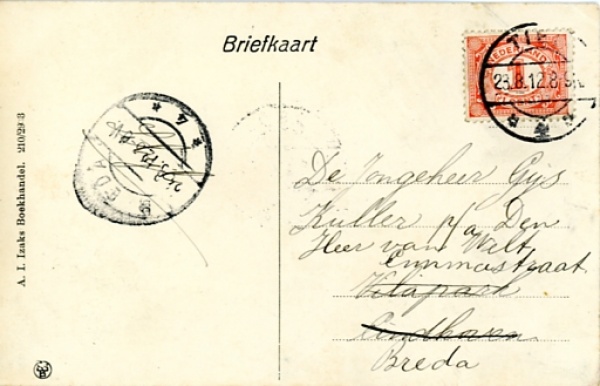 Briefkaart
A. I. Izaks Boekhandel. 210/29 3
NEDERLAND
1
TIE
23.8.12.8-9
EDA
4
De Jongeheer Gijs
Küller p/a Den
Heer van Welt
Emmastraat
Vilapark
Eindhoven
Breda